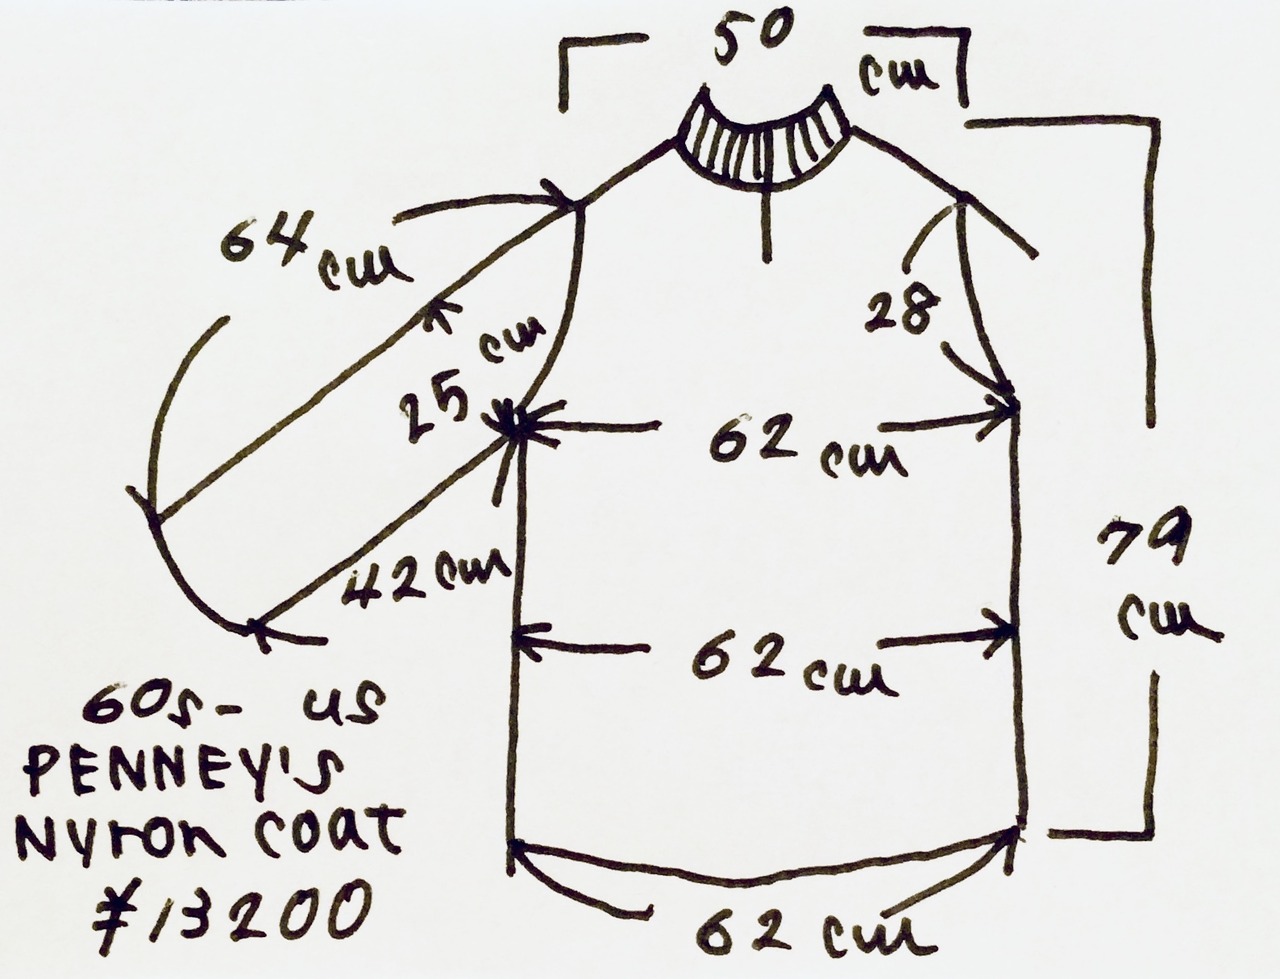 50
cm
64 cm
28
25 cm
62 cm
79
cm
42 cm
62 cm
60s- us
PENNEY'S
Nyron coat
¥13200
62 cm